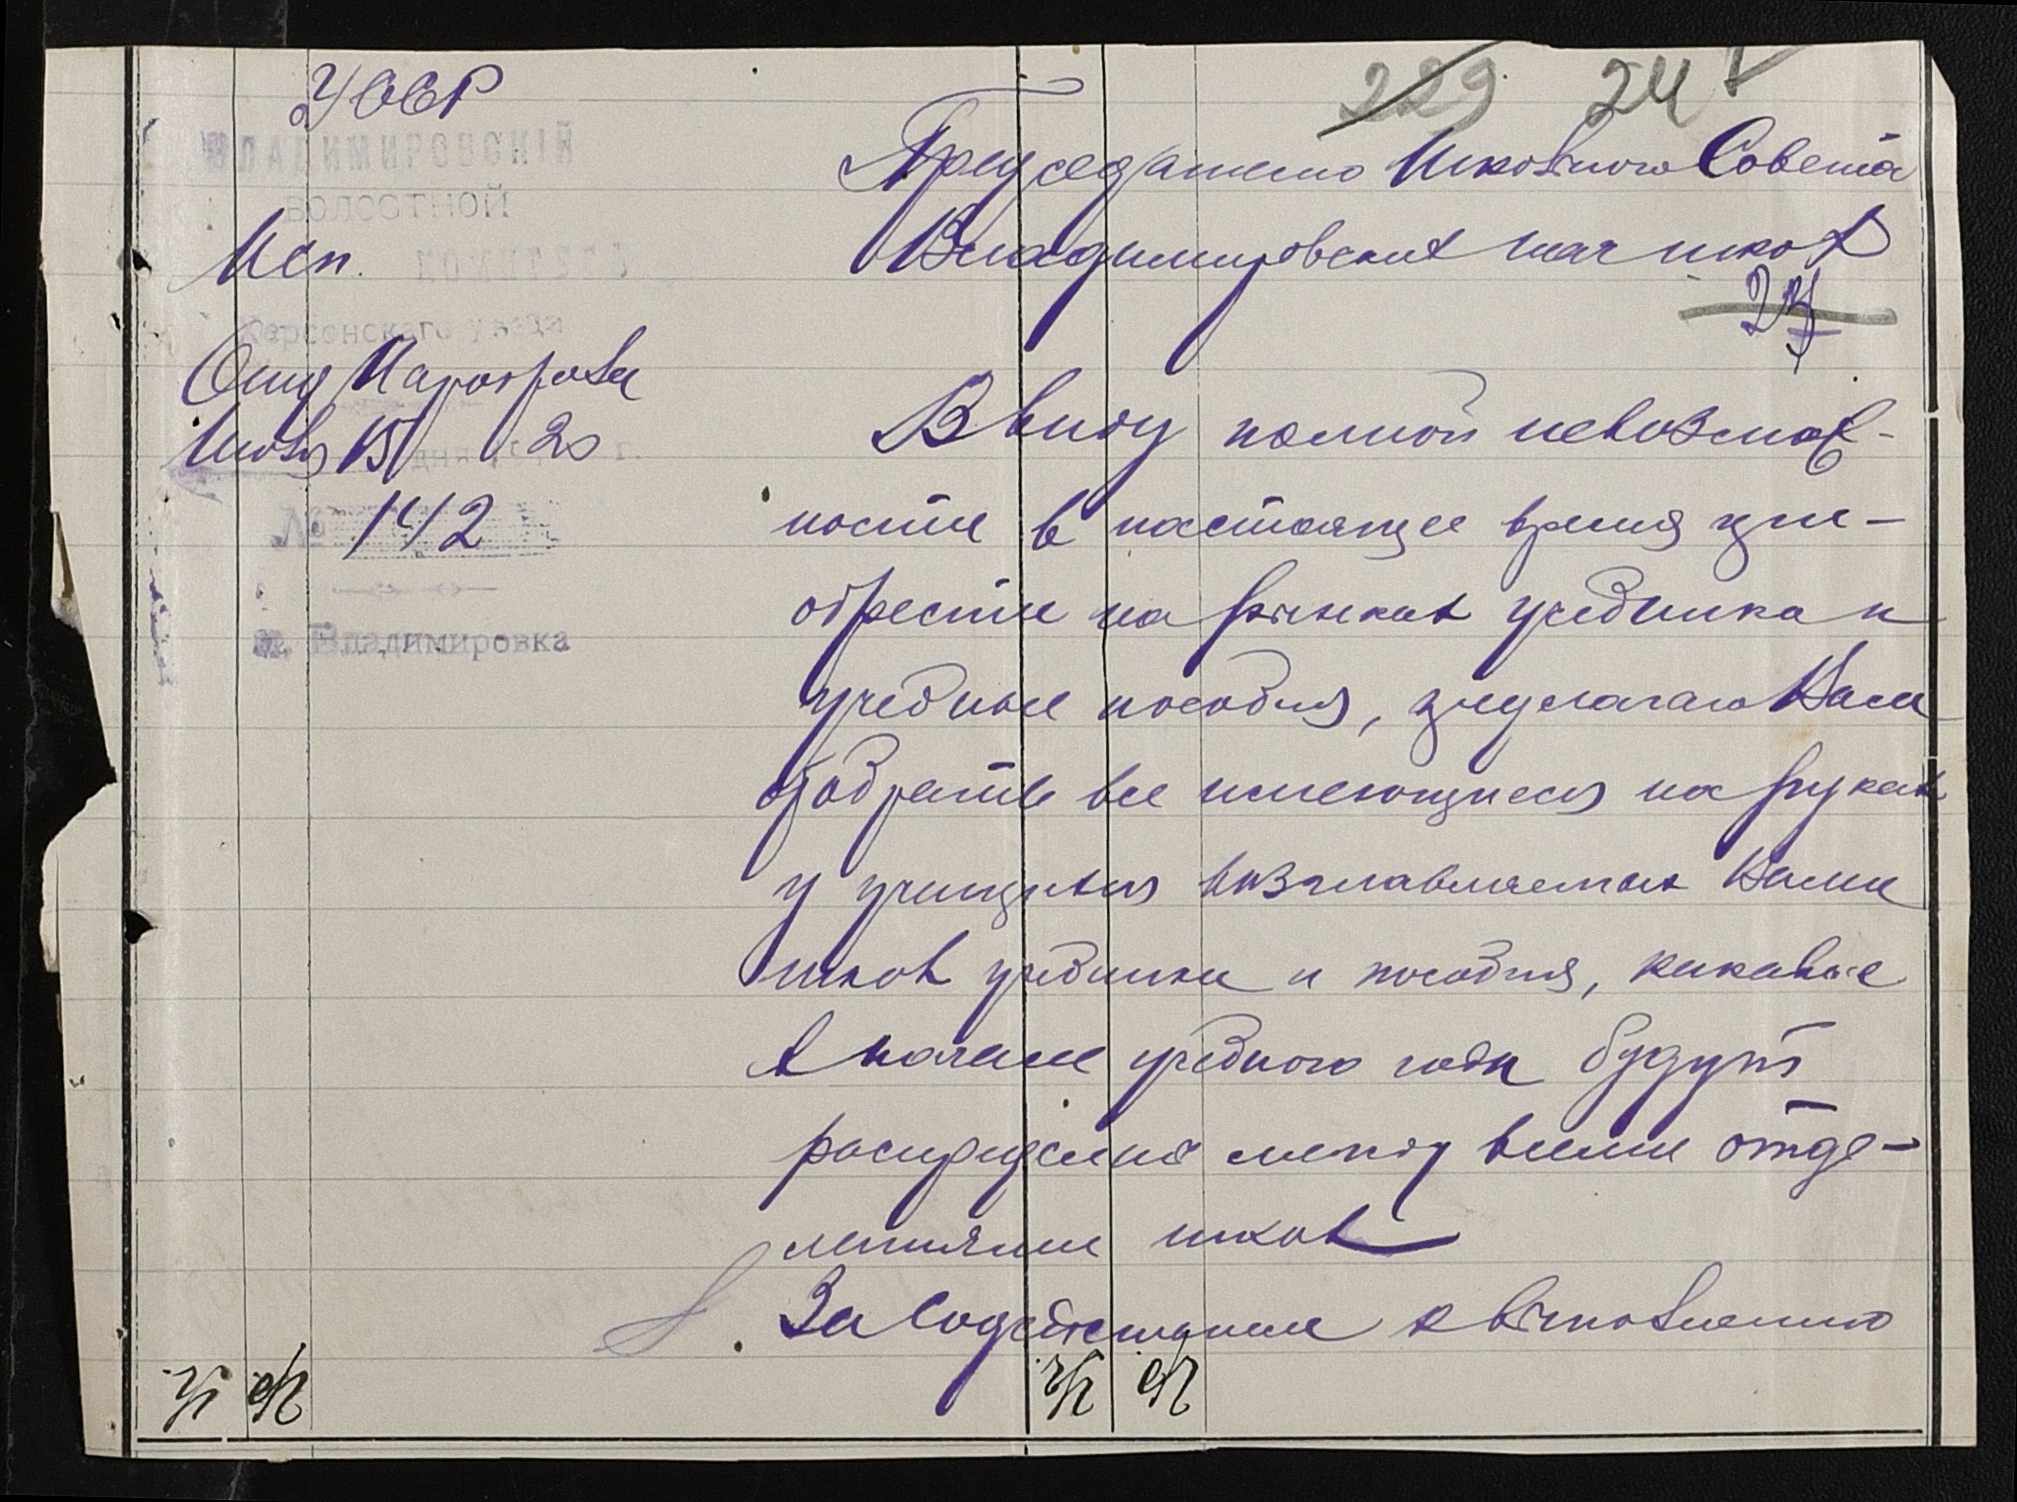 УССР
ВЛАДИМИРОВСКІЙ
ВОЛОСТНОЙ
Исп. КОМИТЕТЪ
Херсонскаго уезда
Отд Нар образов
Июля 15 дня 20 г.
№ 142
м. Владимировка
229 24
Председателю Школьного Совета
Владимировских нач школ
Ввиду полной невозмож-
ности в настоящее время при-
обрести на рынках учебника и
учебные пособия, предлагаю Вам
отобрать все имеющиеся на руках
у учащихся возглавляемых Вами
школ учебники и пособия, каковые
в начале учебного года будут
распределены между всеми отде-
лениями школ
За содействием к выполнению